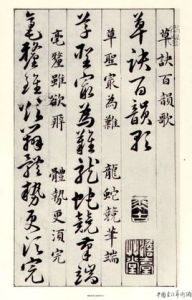 草訣百韻歌
草訣百韻歌
草聖冣為難 龍蛇競筆端
草聖冣為難龍蛇競筆端
毫釐雖欲辨 體勢更須完
毫釐雖欲辨體勢更須完